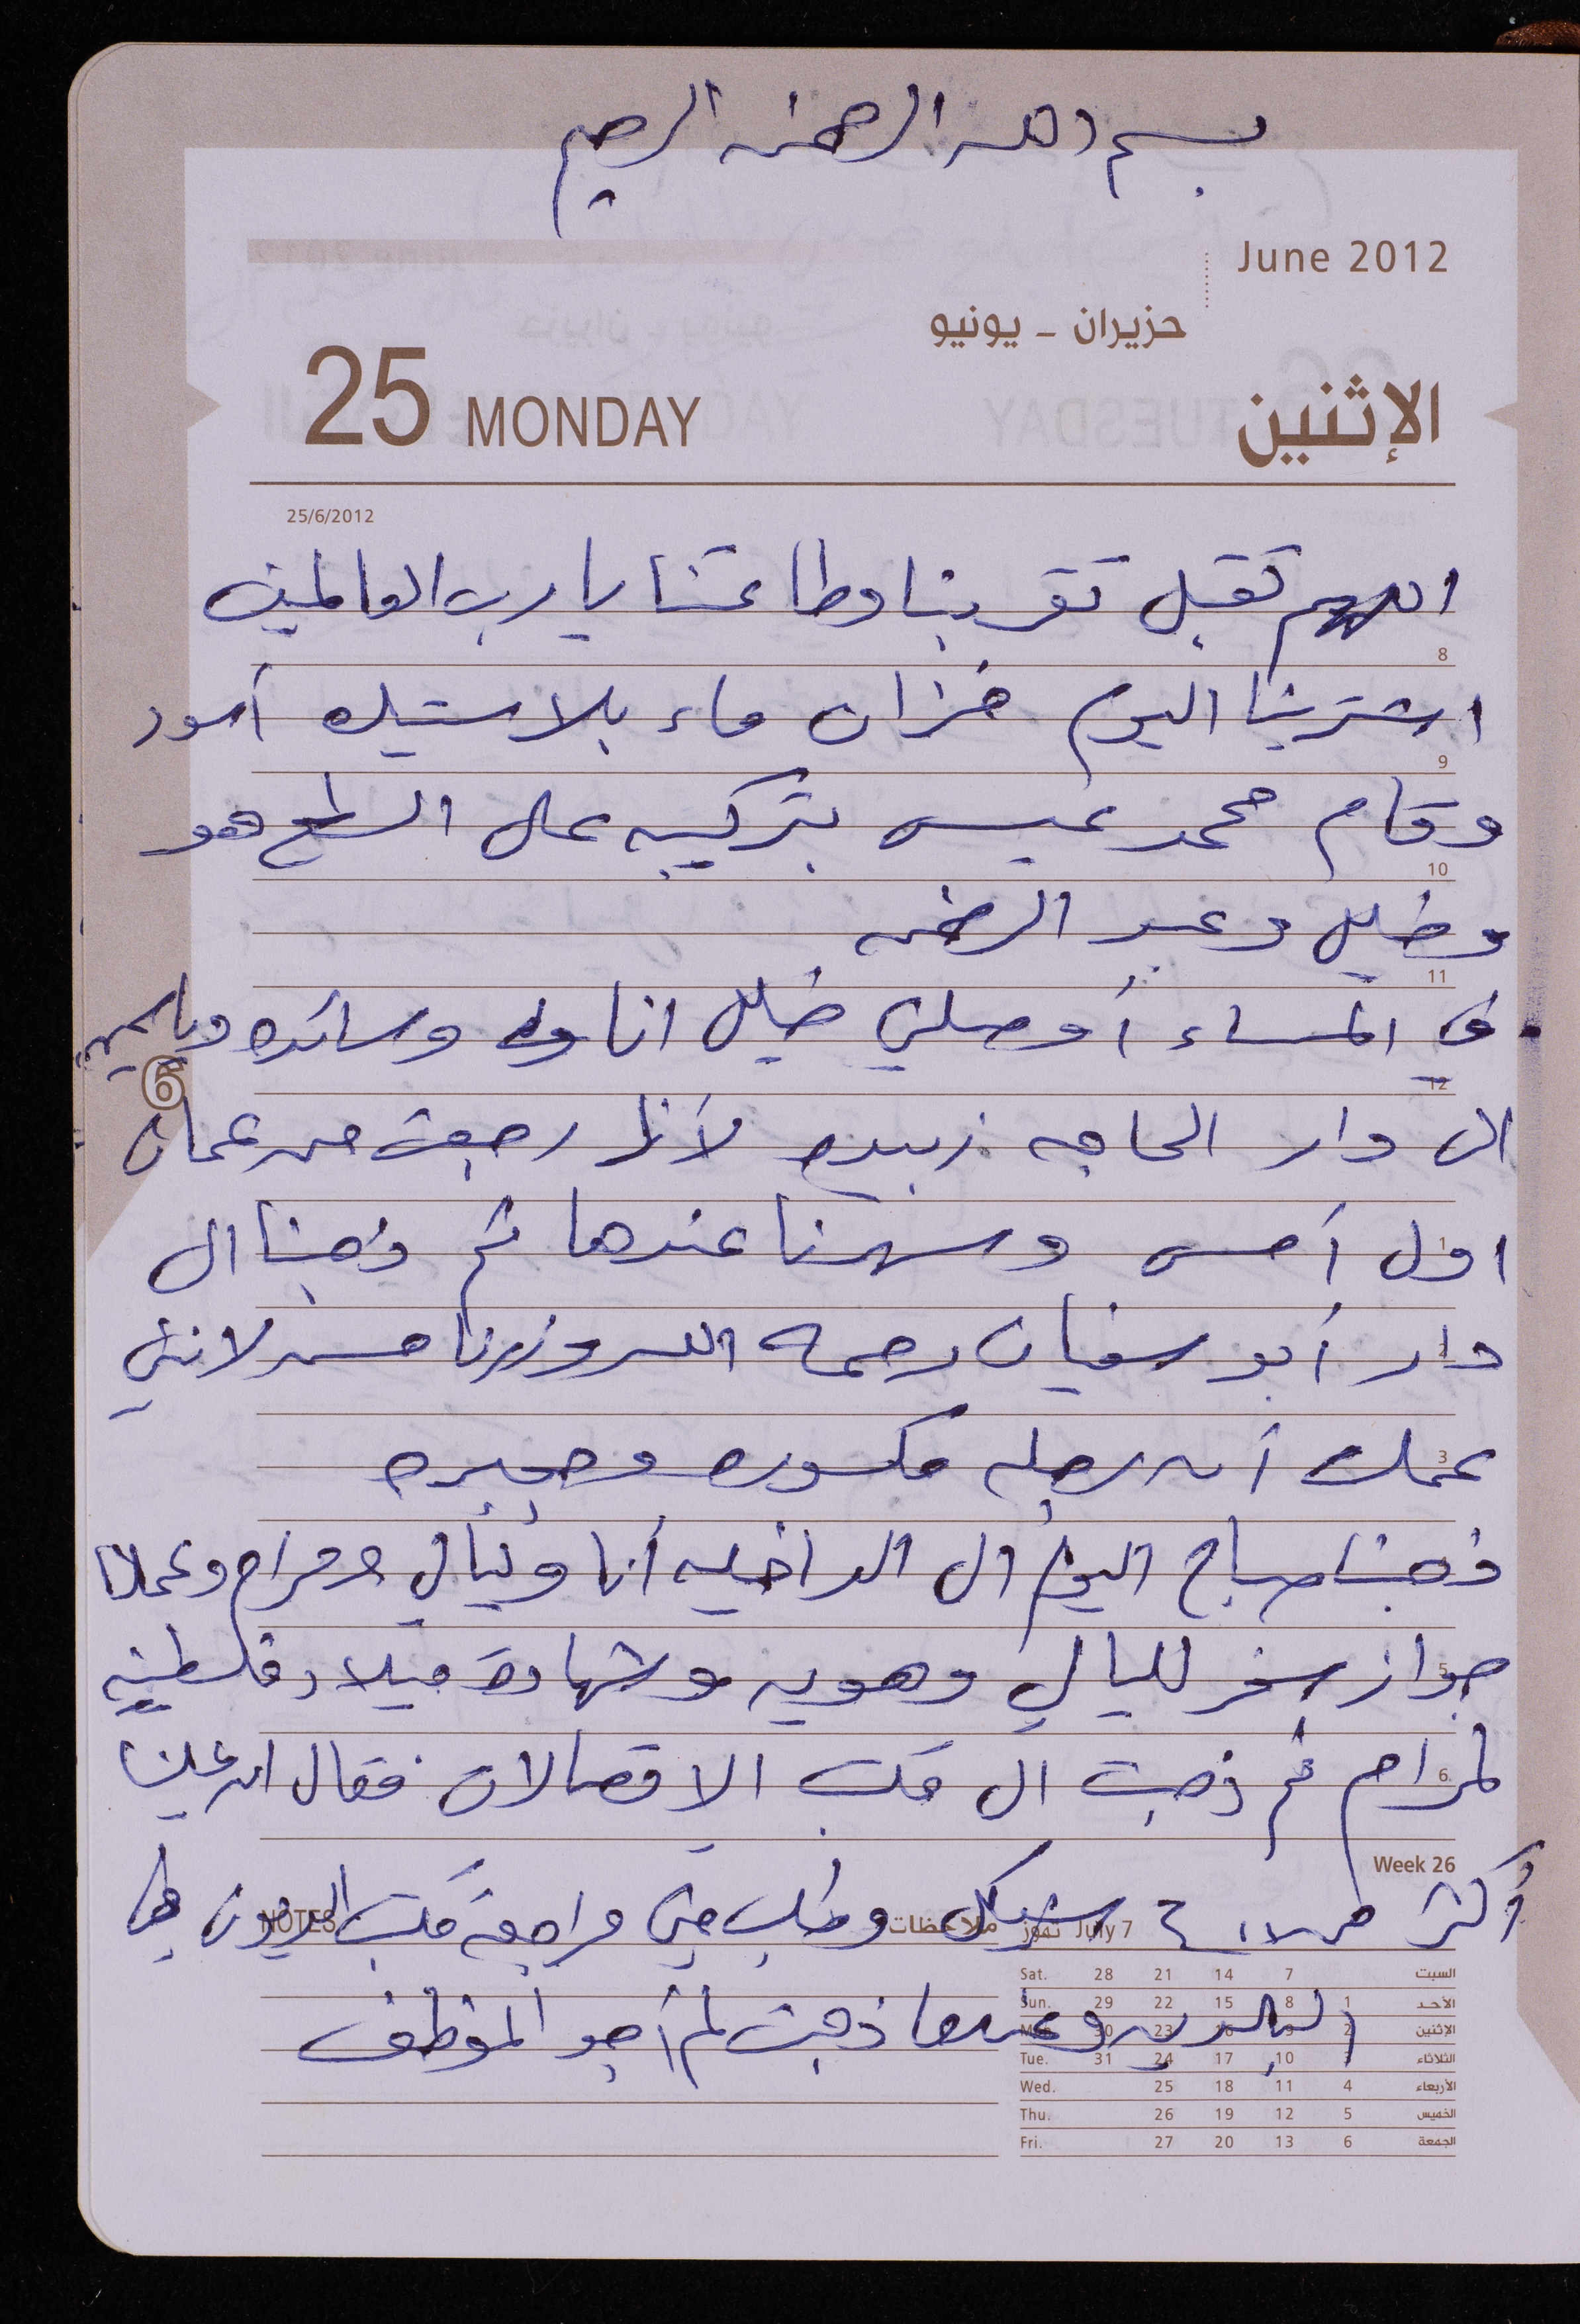 بسم الله الرحمن الرحيم
June 2012
حزيران - يونيو
25 MONDAY
الإثنين
25/6/2012
اللهم تقبل تقربنا وطاعتنا يا رب العالمين
8
اشترينا اليوم خزان ماء بلاستيك أسود
9
وقام محمد عيسى بتركيبه على السطح هو
10
وخليل وعبد الرحمن
11
في المساء أوصلني خليل انا وسائده وياسمين
12
6
الى دار الحاجه زبيده لأنها رجعت من عمان
اول أمس وسهرنا عندها ثم ذهبنا الى
1
دار أبو سفيان رحمه الله وزرنا حسن لانني
2
عملت أن رجله مكسوره ومجبره
3
ذهبنا صباح اليوم الى الداخليه أنا وليالي ومرام وعملنا
جواز سفر لليالي وهويه وشهادة ميلاد فلسطينيه
5
لمرام ثم ذهبت الى مكتب الاتصالات فقال ان علينا
6
Week 26
أكثر من شيكل وطلب مني مراجعة مكتب الديون في
NOTES
ملاحظات
تموز July 7
البالوع وعندما ذهبت لم أجد الموظف
Sat. 28 21 14 7 السبت
Sun. 29 22 15 8 1 الأحد
30 23 16 9 2 الإثنين
Tue. 31 24 17 10 3 الثلاثاء
Wed. 25 18 11 4 الأربعاء
Thu. 26 19 12 5 الخميس
Fri. 27 20 13 6 الجمعة